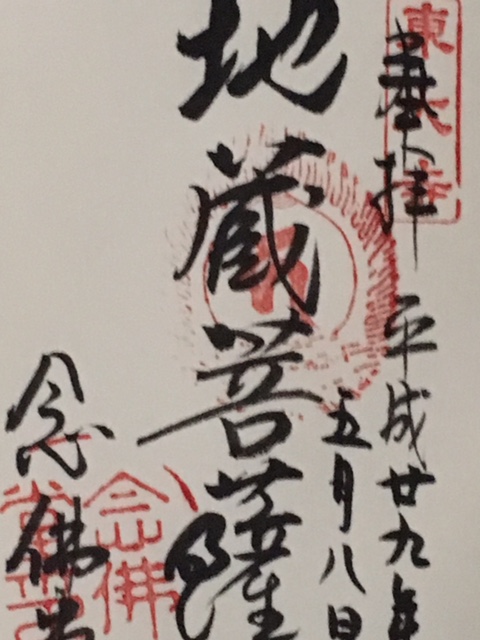 奉拝
平成廿九年
五月八日
地蔵菩薩
念佛